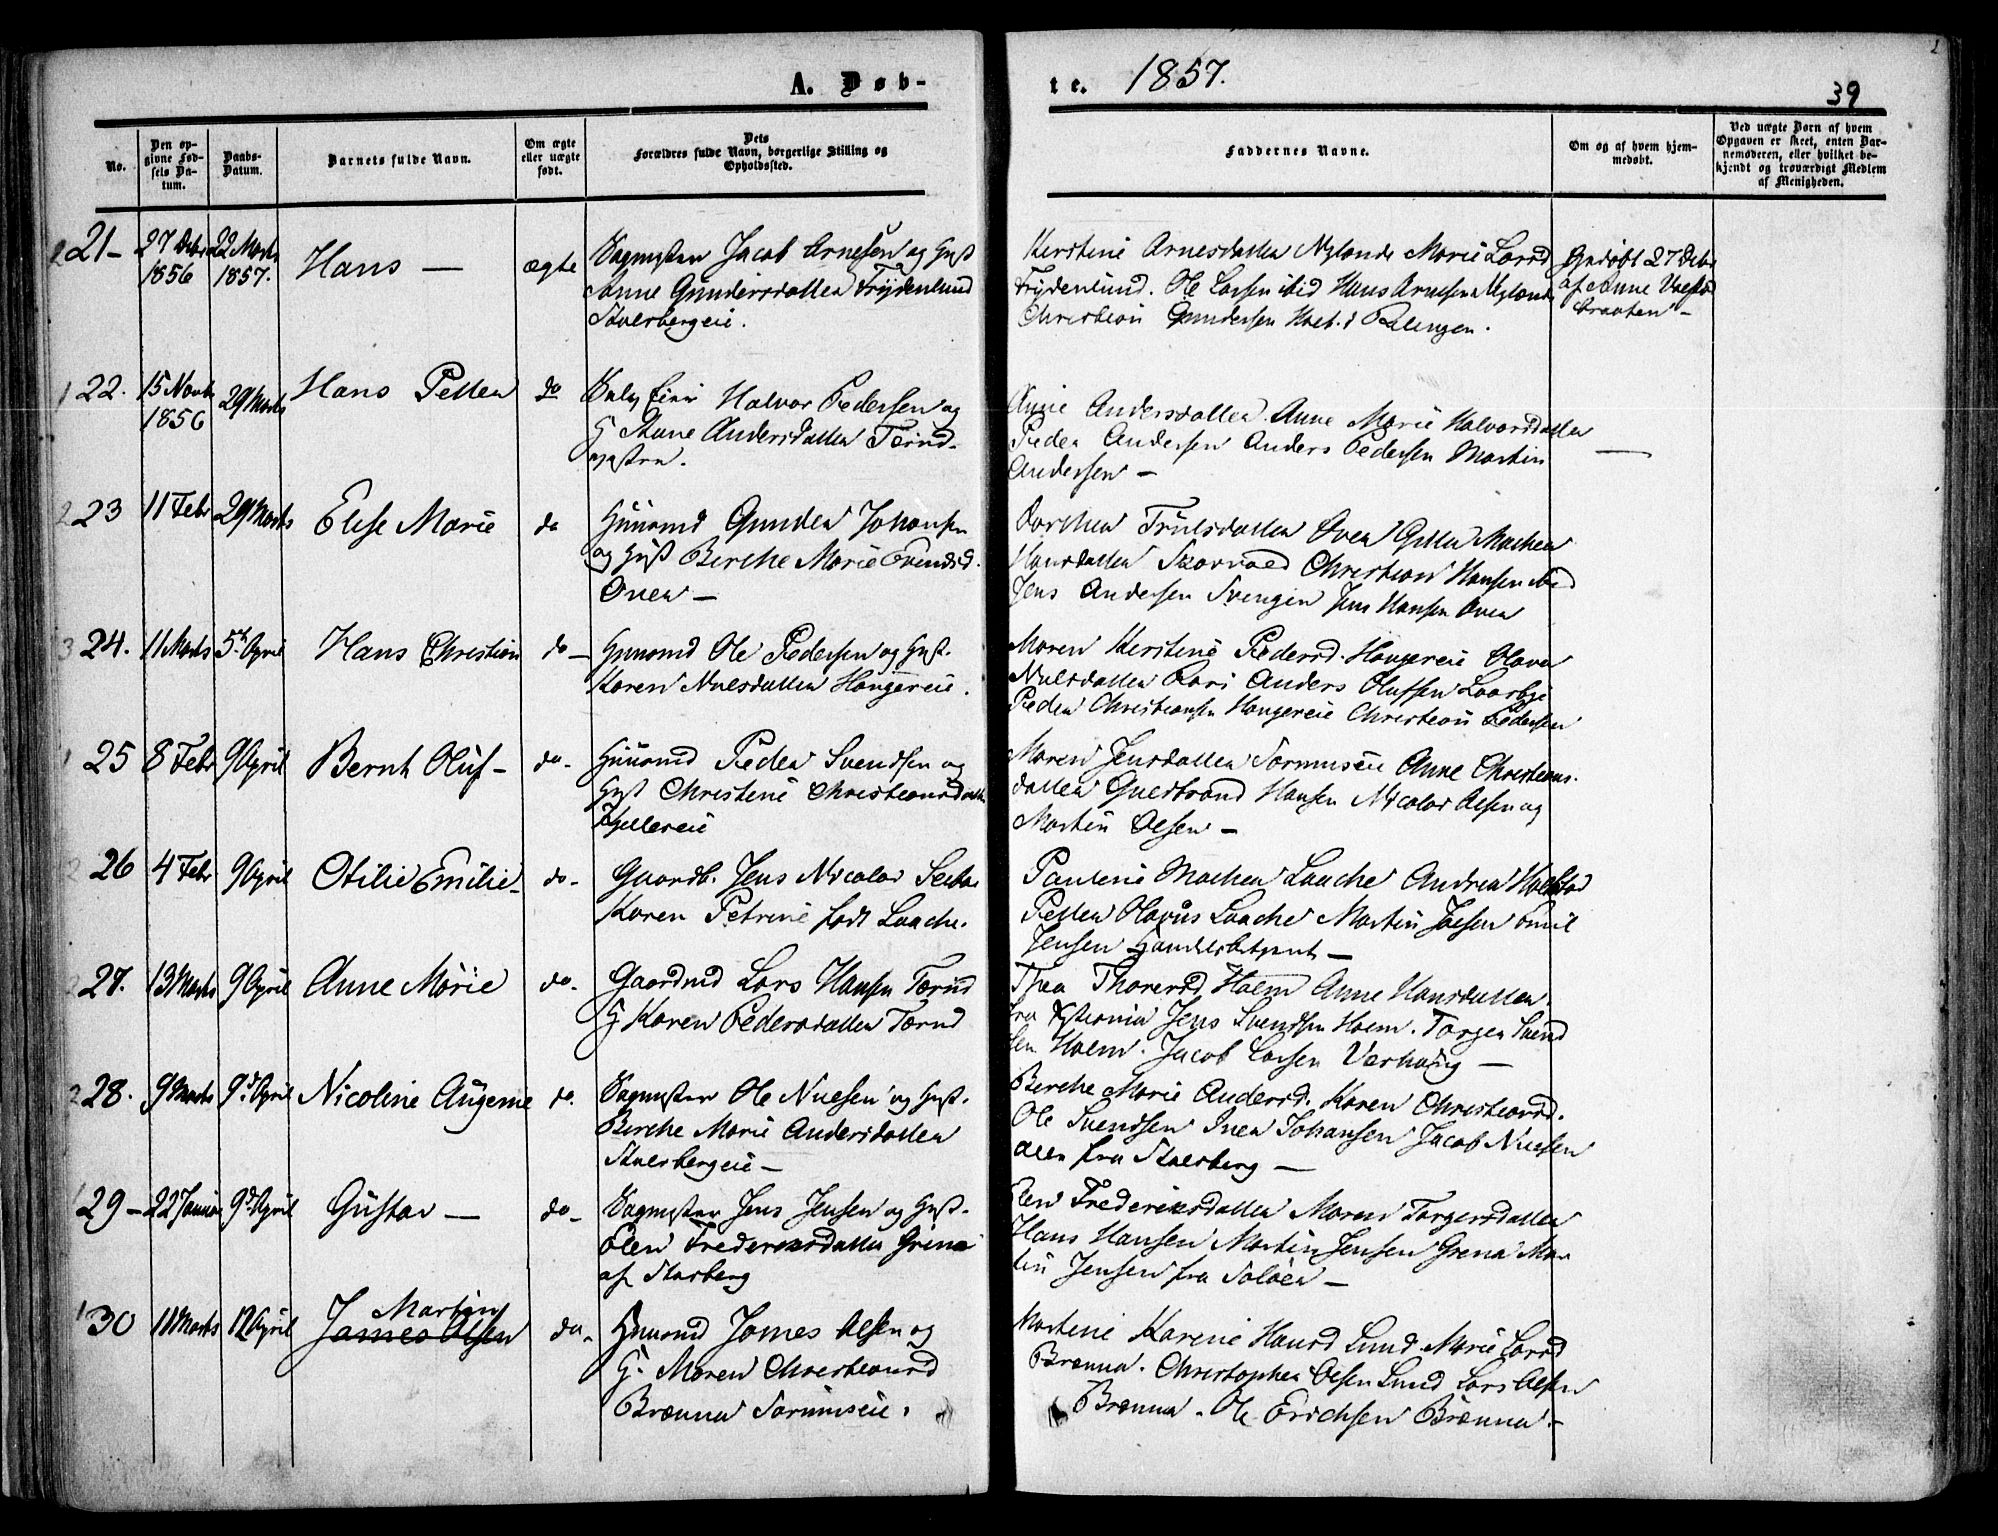 A. Døb-
te. 1857.
39
No.
Den op-
givne Fød-
sels Da-
tum.
Daabs-
Datum.
Barnets fulde Navn.
Om ægte
eller uægte
født.
Dets
Forældres fulde Navn, borgerlige Stilling og
Opholdssted.
Faddernes Navne.
Om og af hvem hjem-
medøbt.
Ved uægte Børn af hvem
Opgaven er skeet, enten Bar-
nemoderen, eller hvilket be-
kjendt og troværdigt Medlem
af Menigheden.
21-
27 Debr
1856
22 Marts
1857.
Hans —
ægte
Jacob Arnesen og Hust
Anne Gundersdatter Frydenlund
Stalsbergeie.
Kirstine Arnesdatter Nylende Marie Larsd
Frydenlund. Ole Larsen ibid Hans Arnesen Nylende
Christian Gundersen
27 Debr
af Anne
braaten -
22.
15 Novb
1856
29 Marts
Hans Petter
do
Halvor Pedersen og
H Anne Andersdatter
Anne Andersdatter. Anne Marie Halvorsdatter
Peder Andersen Anders Pedersen Martin
Andersen —
23
11 Febr
29 Marts
Elise Marie
do
Huusmd Gunder Johansen
og Hust Berthe Marie Evensd.
Oven —
Dorthea Trulsdatter Oven Mathea
Hansdatter Christian Hansen ibid
Jens Andersen Jens Hansen Oven
24.
11 Marts
5t April
Hans Christian
do —
Huusmd Ole Pedersen og Hust.
Karen Nilsdatter Haugereie.
Maren Kirstine Pedersd. Haugereie
Nilsdatter Anders Olufsen
Peder Christiansen Haugereie Christian Pedersen
25
8 Febr
9 April
Bernt Oluf -
do-
Huusmd Peder Svendsen og
Hust Christine Christiansdatter
Maren Jensdatter Anne Christians-
datter Gulbrand Hansen Nicolai Olsen og
Martin Olsen —
26
4 Febr
9 April
Otilie Emilie -
do-
Gaardb. Jens Nicolai
Karen Petrine født Laache.
Pauline Mathea Laache Andrea
Petter Olavus Laache Martin Emil
Jensen Handelsbetjent —
27.
13 Marts
9 April
Anne Marie
do.
Gaardmd Lars Hansen Tornd
H Karen Pedersdatter Tornd
Thea Thorersd Holm Anne Hansdatter
fra Xstiania Jens Svendsen Holm. Torger Svend
sen Holm. Jacob Larsen —
28.
9 Marts
9d April
Nicoline Augenie
do.
Ole Nielsen og Hust.
Berthe Marie Andersdatter
Stalsbergeie —
Berthe Marie Andersd. Karen Christiansd.
Ole Svendsen Iver Johansen Jacob Nielsen
alle fra Stalsberg —
29 -
22 Januar
9d April
Gustav —
do-
Jens Jensen og Hust.
Olen Frederiksdatter Grina
af Stasberg
Olen Frederiksdatter Maren Torgersdatter
Hans Hansen Martin Jensen Grena Mar
tin Jensen fra Soløer —
30
11 Marts
12 April
Martin
James Olsen
do.
Huusmd James Olsen og
H. Maren Christiansd
Brænna
Martine Karine Hansd Lund. Marie Larsd
Brænna. Christopher Olsen Lund Lars Olsen
Brænna. Ole Erichsen Brænna -